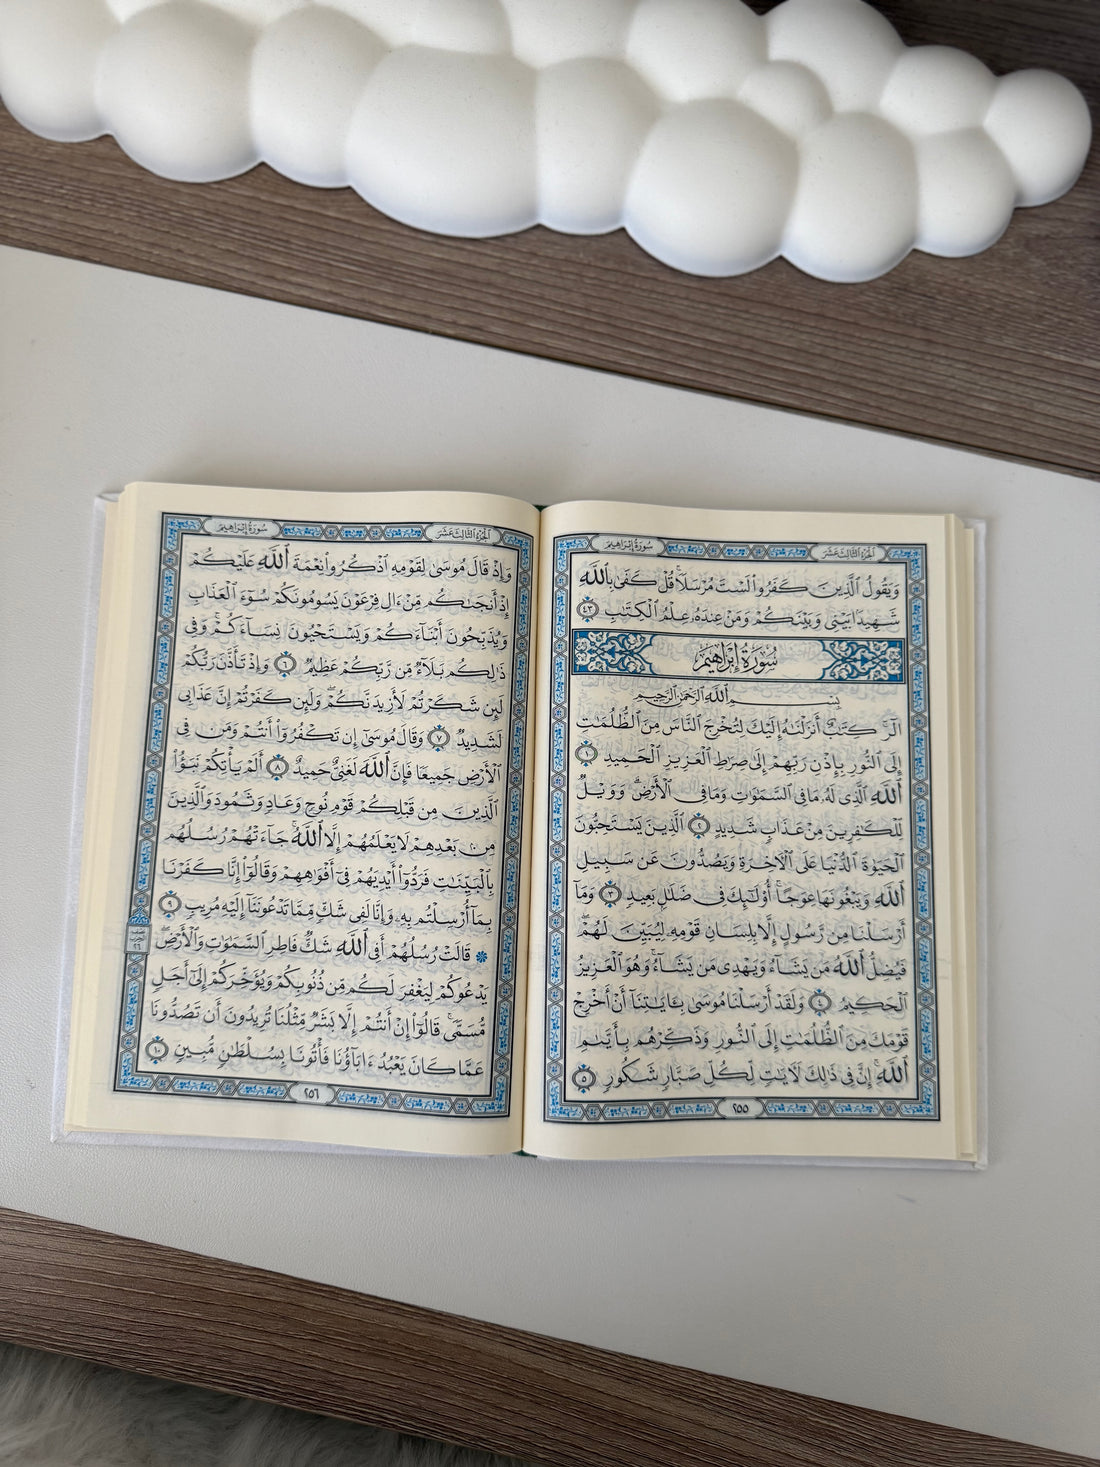 الجزء الثالث عشر
سورة إبراهيم
وَيَقُولُ ٱلَّذِينَ كَفَرُوا۟ لَسْتَ مُرْسَلًا ۚ قُلْ كَفَىٰ بِٱللَّهِ
شَهِيدًۢا بَيْنِى وَبَيْنَكُمْ وَمَنْ عِندَهُۥ عِلْمُ ٱلْكِتَٰبِ ٤٣
سُورَةُ إِبْرَاهِيمَ
بِسْمِ ٱللَّهِ ٱلرَّحْمَٰنِ ٱلرَّحِيمِ
الٓر ۚ كِتَٰبٌ أَنزَلْنَٰهُ إِلَيْكَ لِتُخْرِجَ ٱلنَّاسَ مِنَ ٱلظُّلُمَٰتِ
إِلَى ٱلنُّورِ بِإِذْنِ رَبِّهِمْ إِلَىٰ صِرَٰطِ ٱلْعَزِيزِ ٱلْحَمِيدِ ١
ٱللَّهِ ٱلَّذِى لَهُۥ مَا فِى ٱلسَّمَٰوَٰتِ وَمَا فِى ٱلْأَرْضِ ۗ وَوَيْلٌ
لِّلْكَٰفِرِينَ مِنْ عَذَابٍ شَدِيدٍ ٢ ٱلَّذِينَ يَسْتَحِبُّونَ
ٱلْحَيَوٰةَ ٱلدُّنْيَا عَلَى ٱلْءَاخِرَةِ وَيَصُدُّونَ عَن سَبِيلِ
ٱللَّهِ وَيَبْغُونَهَا عِوَجًا ۚ أُو۟لَٰٓئِكَ فِى ضَلَٰلٍۭ بَعِيدٍ ٣ وَمَآ
أَرْسَلْنَا مِن رَّسُولٍ إِلَّا بِلِسَانِ قَوْمِهِۦ لِيُبَيِّنَ لَهُمْ ۖ
فَيُضِلُّ ٱللَّهُ مَن يَشَآءُ وَيَهْدِى مَن يَشَآءُ ۚ وَهُوَ ٱلْعَزِيزُ
ٱلْحَكِيمُ ٤ وَلَقَدْ أَرْسَلْنَا مُوسَىٰ بِـَٔايَٰتِنَآ أَنْ أَخْرِجْ
قَوْمَكَ مِنَ ٱلظُّلُمَٰتِ إِلَى ٱلنُّورِ وَذَكِّرْهُم بِأَيَّىٰمِ
ٱللَّهِ ۚ إِنَّ فِى ذَٰلِكَ لَءَايَٰتٍ لِّكُلِّ صَبَّارٍ شَكُورٍ ٥
٢٥٥
الجزء الثالث عشر
سورة إبراهيم
وَإِذْ قَالَ مُوسَىٰ لِقَوْمِهِ ٱذْكُرُوا۟ نِعْمَةَ ٱللَّهِ عَلَيْكُمْ
إِذْ أَنجَىٰكُم مِّنْ ءَالِ فِرْعَوْنَ يَسُومُونَكُمْ سُوٓءَ ٱلْعَذَابِ
وَيُذَبِّحُونَ أَبْنَآءَكُمْ وَيَسْتَحْيُونَ نِسَآءَكُمْ ۚ وَفِى
ذَٰلِكُم بَلَآءٌ مِّن رَّبِّكُمْ عَظِيمٌ ٦ وَإِذْ تَأَذَّنَ رَبُّكُمْ
لَئِن شَكَرْتُمْ لَأَزِيدَنَّكُمْ ۖ وَلَئِن كَفَرْتُمْ إِنَّ عَذَابِى
لَشَدِيدٌ ٧ وَقَالَ مُوسَىٰٓ إِن تَكْفُرُوٓا۟ أَنتُمْ وَمَن فِى
ٱلْأَرْضِ جَمِيعًا فَإِنَّ ٱللَّهَ لَغَنِىٌّ حَمِيدٌ ٨ أَلَمْ يَأْتِكُمْ نَبَؤُا۟
ٱلَّذِينَ مِن قَبْلِكُمْ قَوْمِ نُوحٍ وَعَادٍ وَثَمُودَ ۛ وَٱلَّذِينَ
مِنۢ بَعْدِهِمْ ۛ لَا يَعْلَمُهُمْ إِلَّا ٱللَّهُ ۚ جَآءَتْهُمْ رُسُلُهُم
بِٱلْبَيِّنَٰتِ فَرَدُّوٓا۟ أَيْدِيَهُمْ فِىٓ أَفْوَٰهِهِمْ وَقَالُوٓا۟ إِنَّا كَفَرْنَا
بِمَآ أُرْسِلْتُم بِهِۦ وَإِنَّا لَفِى شَكٍّ مِّمَّا تَدْعُونَنَآ إِلَيْهِ مُرِيبٍ ٩
۞ قَالَتْ رُسُلُهُمْ أَفِى ٱللَّهِ شَكٌّ فَاطِرِ ٱلسَّمَٰوَٰتِ وَٱلْأَرْضِ ۖ
يَدْعُوكُمْ لِيَغْفِرَ لَكُم مِّن ذُنُوبِكُمْ وَيُؤَخِّرَكُمْ إِلَىٰٓ أَجَلٍ
مُّسَمًّى ۚ قَالُوٓا۟ إِنْ أَنتُمْ إِلَّا بَشَرٌ مِّثْلُنَا تُرِيدُونَ أَن تَصُدُّونَا
عَمَّا كَانَ يَعْبُدُ ءَابَآؤُنَا فَأْتُونَا بِسُلْطَٰنٍ مُّبِينٍ ١٠
نصف
الحزب
٢٦
٢٥٦